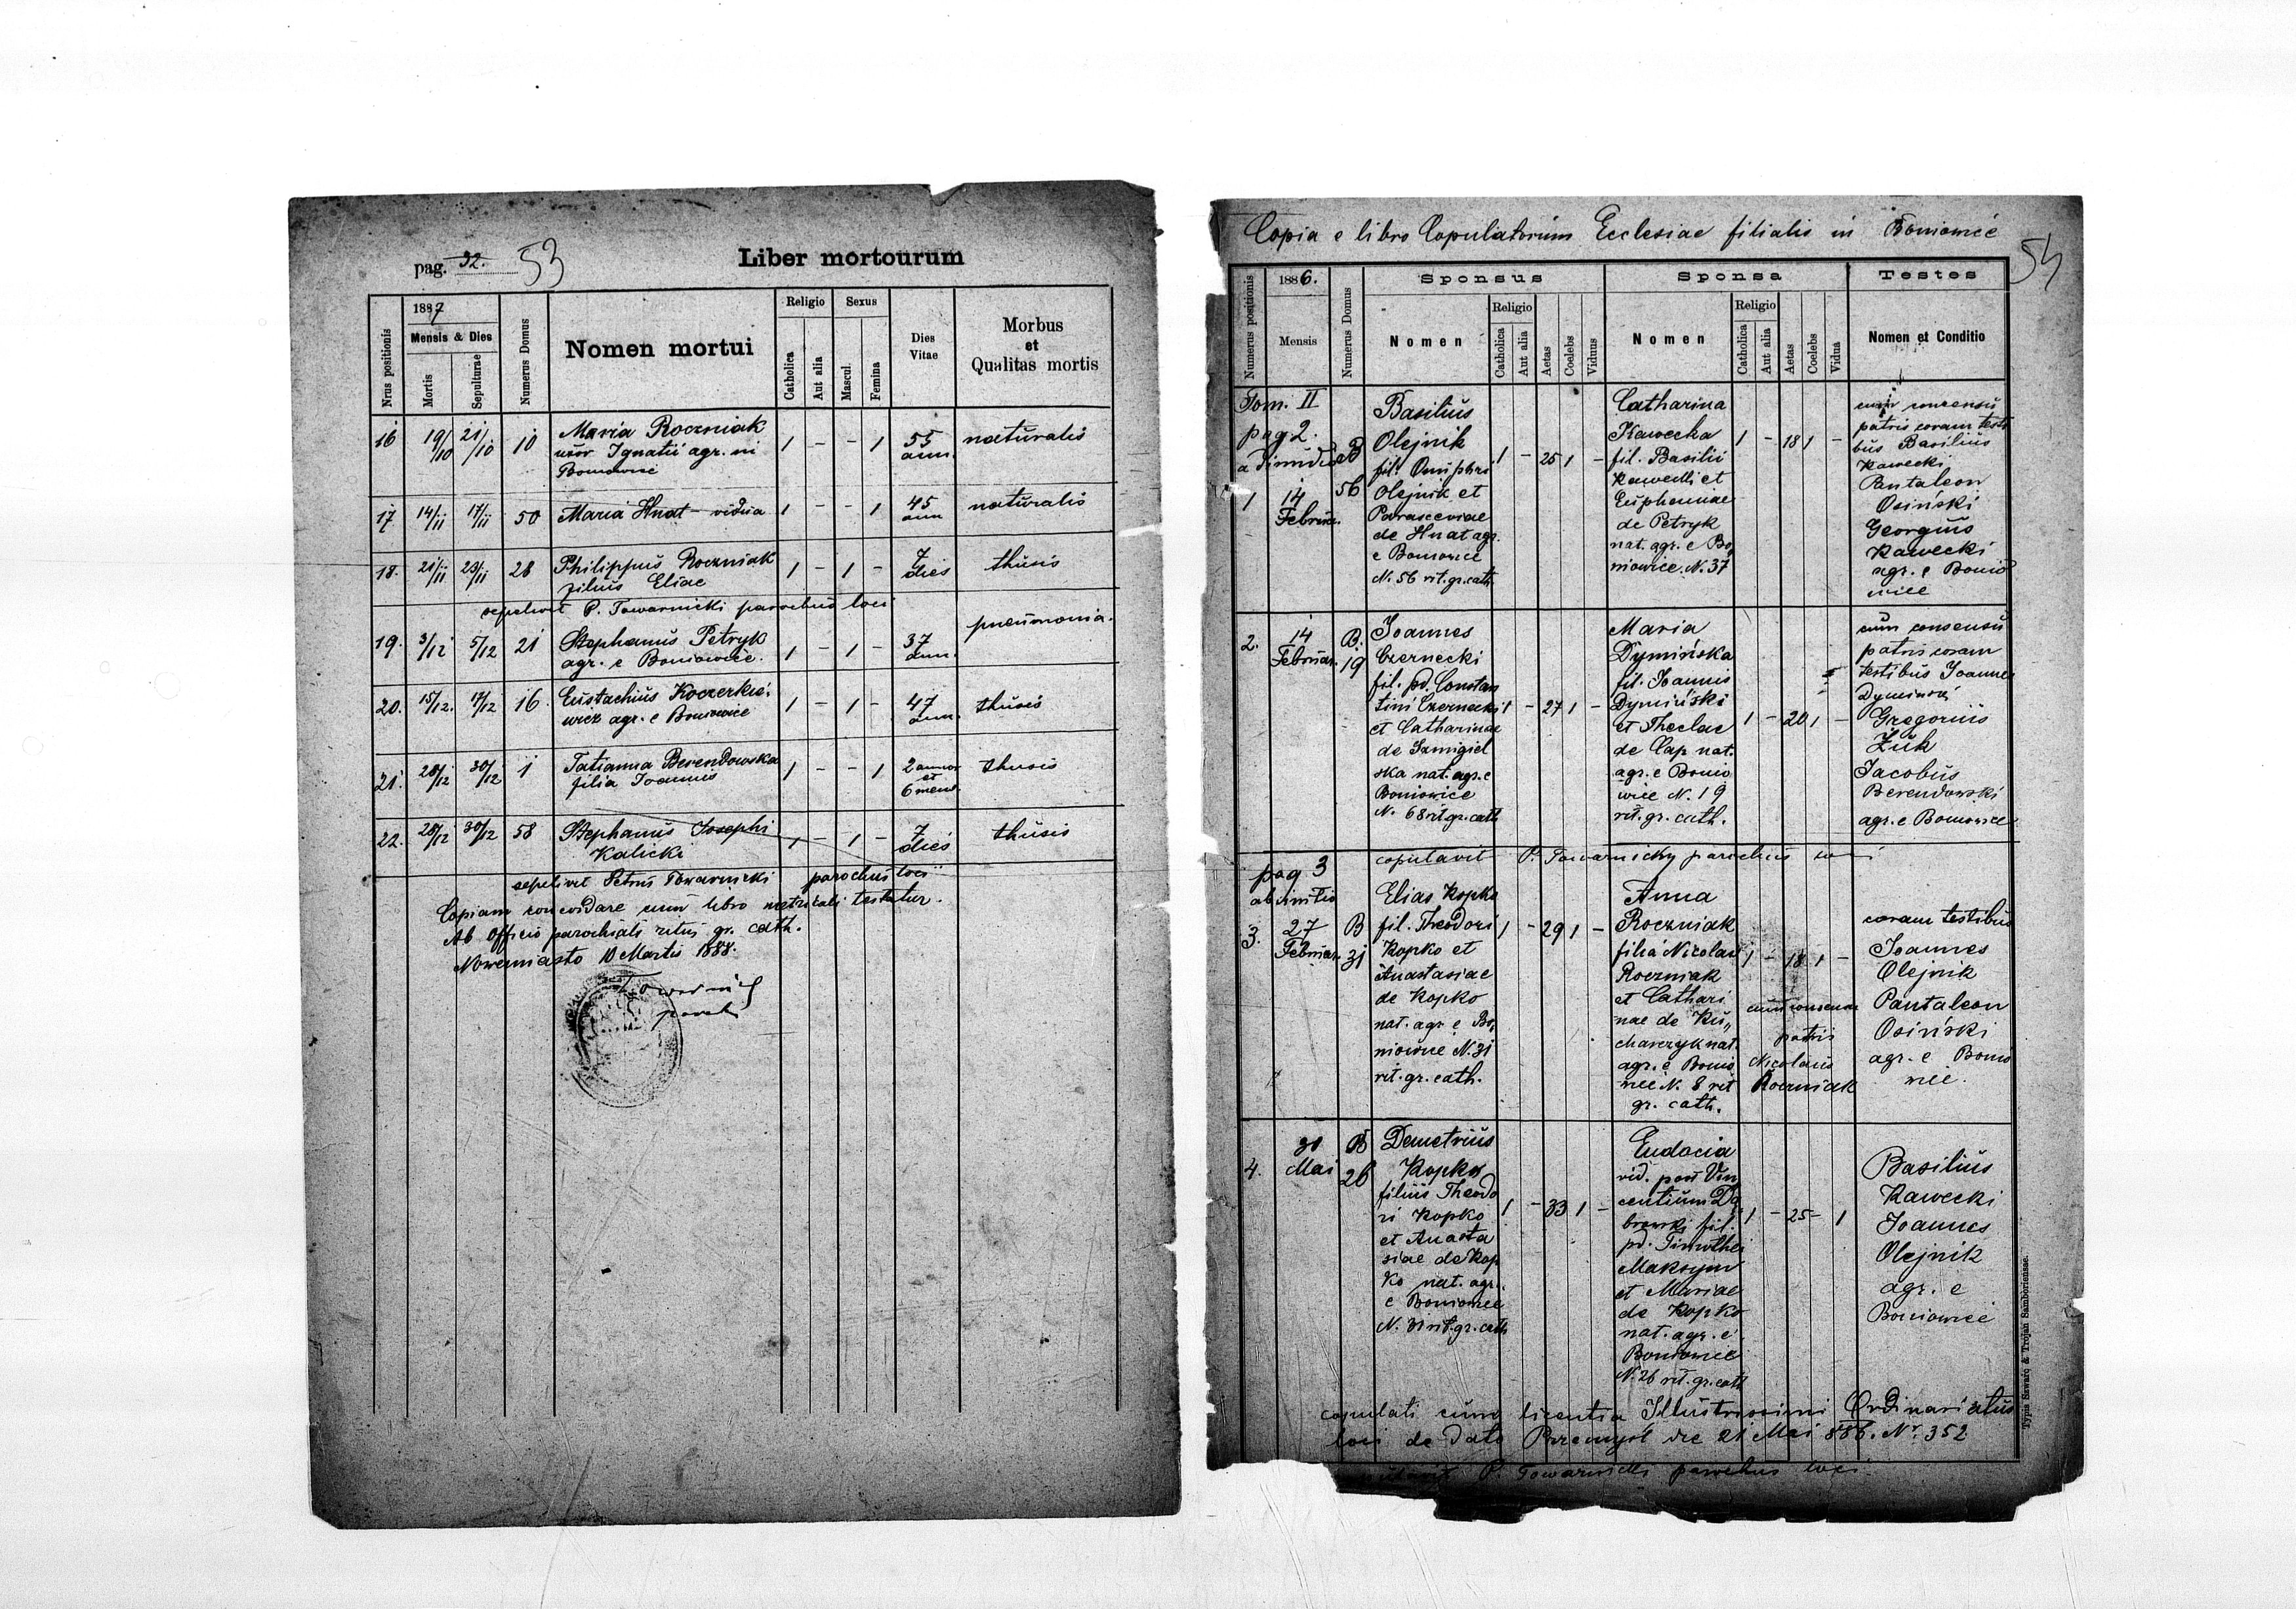 pag. 32. 53
Liber mortourum
Nrus positionis
1887
Mensis & Dies
Mortis
Sepulturae
Numerus Domus
Nomen mortui
Religio
Catholica
Aut alia
Sexus
Mascul.
Femina
Dies
Vitae
Morbus
et
Qualitas mortis
16 19/10 21/10 10 Maria Roczniak 1 - - 1 55 naturalis
uxor Ignatii agr. in ann.
Boniowice
17 14/11 17/11 50 Maria Hnat - vidua 1 - - 1 45 naturalis
ann
18. 21/11 23/11 28 Philippus Roczniak 1 - 1 - 7 thusis
filius Eliae dies
sepelivit P. Towarnicki parochus loci
19. 3/12 5/12 21 Stephanus Petryk 1 - 1 - 37 pneumonia.
agr. e Boniowice. ann.
20. 15/12. 17/12 16. Eustachius Koczerkie- 1 - 1 - 47 thusis
wicz agr. e Boniowice ann.
21. 28/12 30/12 1 Tatianna Berendowska 1 - - 1 2 annor thusis
filia Joannis et
6 mens.
22. 28/12 30/12 58 Stephanus Josephi 1 - 1 - 7 thusis
Kalicki dies
sepelivit Petrus Towarnicki parochus loci
Copiam concordare cum libro metricali testatur.
Ab Officio parochiali ritus gr. cath.
Nowemiasto 10 Martis 1888.
Towarnicki
paroch
Copia e libro Copulatorum Ecclesiae filialis in Boniowice
54
Numerus positionis
1886.
Mensis
Numerus Domus
Sponsus
Nomen
Religio
Catholica
Aut alia
Aetas
Coelebs
Viduus
Sponsa
Nomen
Religio
Catholica
Aut alia
Aetas
Coelebs
Vidua
Testes
Nomen et Conditio
Tom. II
pag 2.
a dimidio
1 14
Februar.
B
56
Basilius
Olejnik
fil. Onuphri
Olejnik et
Parasceviae
de Hnat agr.
e Boniowice
N. 56 rit. gr. cath.
1 - 25 1 -
Catharina
Kawecka
fil. Basilii
Kawecki et
Euphemiae
de Petryk
nat. agr. e Bo„
niowice. N. 37
1 - 18 1 -
cum consensu
patris coram testi
bus Basilius
Kawecki
Pantaleon
Osiński
Georgius
Kawecki
agr. e Bonio
wice
2. 14
Februar.
B.
19
Joannes
Czernecki
fil. pd. Constan
tini Czernecki
et Catharinae
de Samigiel
ska nat. agr. e
Boniowice
N. 68 rit gr. cath
1 - 27 1 -
Maria
Dymińska
fil. Joannis
Dymiński
et Theclae
de Cap nat.
agr. e Bonio
wice N. 19
rit. gr. cath.
1 - 20 1 -
cum consensu
patris coram
testibus Joannes
Dymiński
Gregorius
Żuk
Jacobus
Berendowski
agr. e Boniowice
copulavit P. Towarnicky parochus loci
pag 3
ab initio
3. 27
Februar.
B
31
Elias Kopko
fil. Theodori
Kopko et
Anastasiae
de Kopko
nat. agr. e Bo„
niowice N. 31
rit. gr. cath.
1 - 29 1 -
Anna
Roczniak
filia Nicolai
Roczniak
et Cathari
nae de Ku„
charczyk nat.
agr. e Bonio
wice N. 8 rit
gr. cath.
1 - 18 1 -
cum consensu
patris
Nicolaus
Roczniak
coram testibus
Joannes
Olejnik
Pantaleon
Osiński
agr. e Bonio
wice.
4. 30
Mai
B
26
Demetrius
Kopko
filius Theodo
ri Kopko
et Anasta
siae de Kop
ko nat. agr.
e Boniowice
N. 31 rit. gr. cath
1 - 33 1 -
Eudocia
vid. post Vin
centium Dą
browski fil.
pd. Timothei
Maksym
et Mariae
de Kopko
nat. agr. e
Boniowice
N. 26 rit. gr. cath
1 - 25 - 1
Basilius
Kawecki
Joannes
Olejnik
agr. e
Boniowice
copulati cum licentia Illustrissimi Ordinariatus
loci de dato Przemyśl die 21 Mai 886. Nr. 352
P. Towarnicki parochus loci
Typis Szwarc & Trojan Samboriensae.